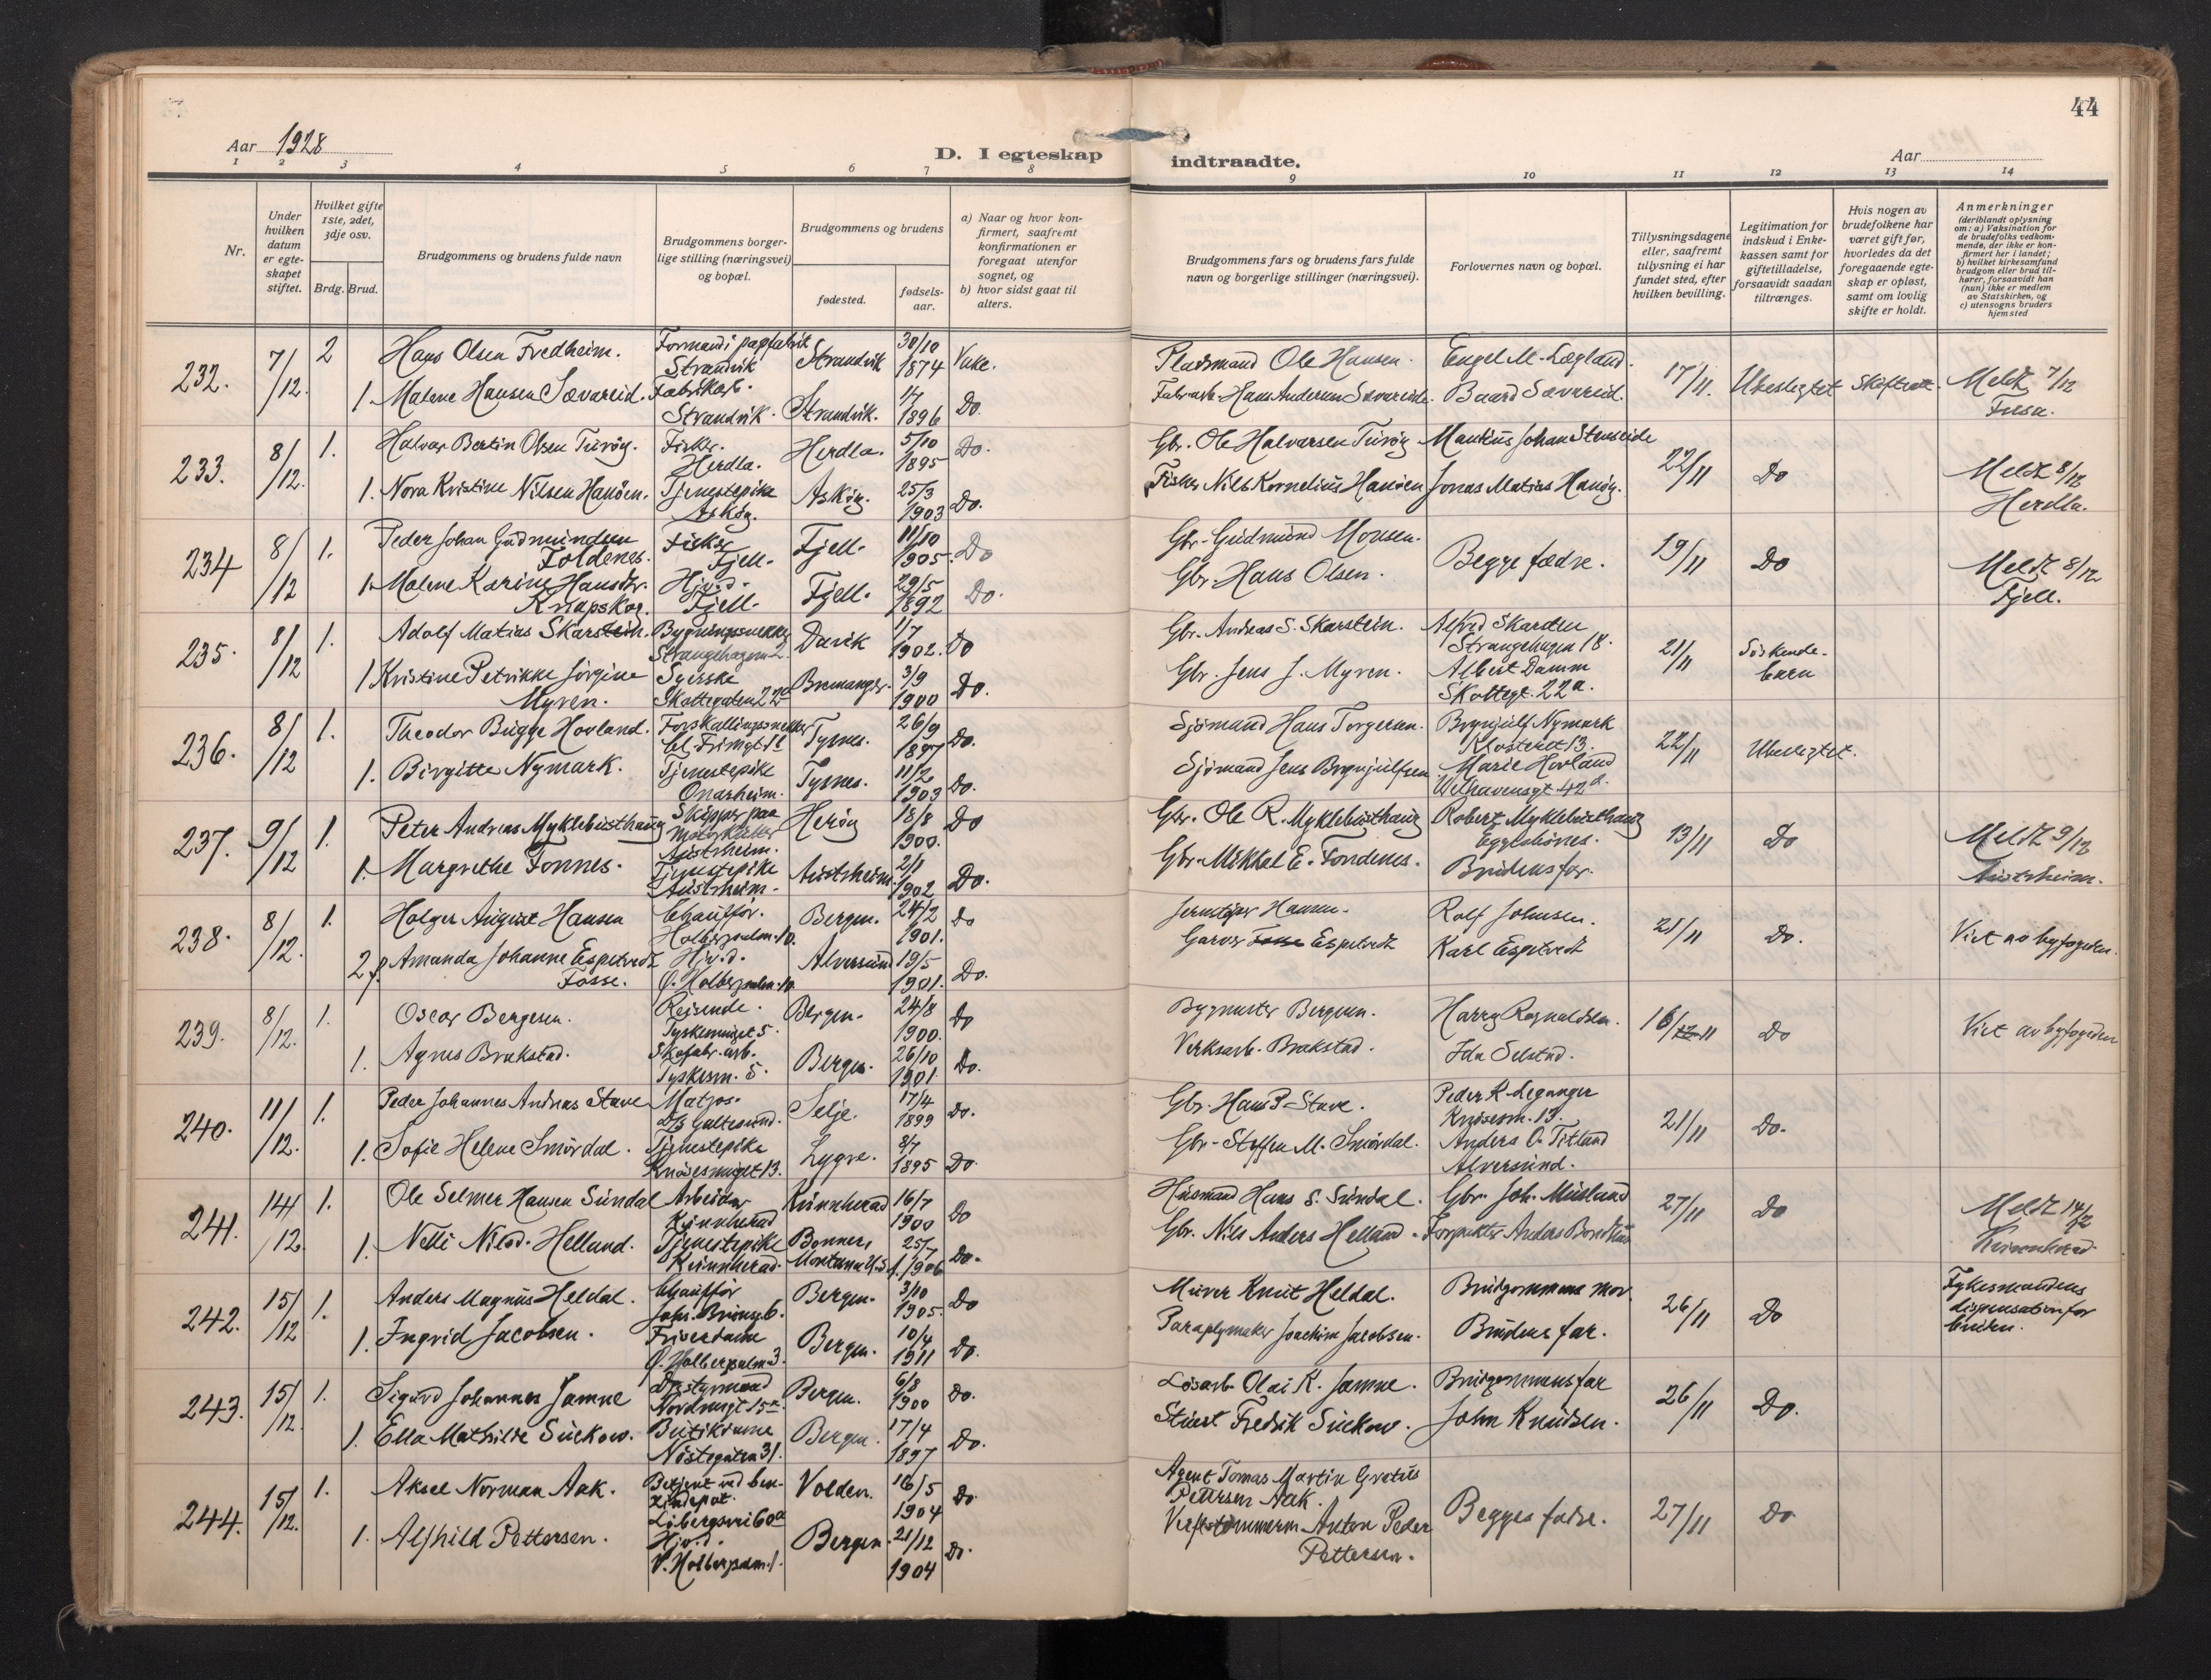 44
Aar 1928
D. I egteskap indtraadte.
Aar
1 2 3 4 5 6 7 8 9 10 11 12 13 14
Nr.
Under hvilken datum er egteskapet stiftet.
Hvilket gifte 1ste, 2det, 3dje osv.
Brdg. Brud.
Brudgommens og brudens fulde navn
Brudgommens borgerlige stilling (næringsvei) og bopæl.
Brudgommens og brudens
fødested.
fødselsaar.
a) Naar og hvor konfirmert, saafremt konfirmationen er foregaat utenfor sognet, og
b) hvor sidst gaat til alters.
Brudgommens fars og brudens fars fulde navn og borgerlige stillinger (næringsvei).
Forlovernes navn og bopæl.
Tillysningsdagene eller, saafremt tillysning ei har fundet sted, efter hvilken bevilling.
Legitimation for indskud i Enkekassen samt for giftetilladelse, forsaavidt saadan tiltrænges.
Hvis nogen av brudefolkene har været gift før, hvorledes da det foregaaende egteskap er opløst, samt om lovlig skifte er holdt.
Anmerkninger
(deriblandt oplysning om: a) Vaksination for de brudefolks vedkommende, der ikke er konfirmert her i landet; b) hvilket kirkesamfund brudgom eller brud tilhører, forsaavidt han (hun) ikke er medlem av Statskirken, og c) utensogns bruders hjemsted
232. 7/12. 2 Hans Olsen Fredheim. Formand i papfabrik Strandvik Strandvik 30/10 1874 Vake. Pladsmand Ole Hansen. Engel M. Lægland. 17/11. Ubeslegtet Skifteatt. Meldt 7/12 Fusa.
1. Malene Hansen Sævareid. Fabrikarb. Strandvik. Strandvik. 1/7 1896 Do. Fabr.arb. Hans Andersen Sævareide. Baard Sævareid.
233. 8/12. 1. Halvar Bertin Olsen Turøy. Fisker. Herdla. Herdla. 5/10 1895 Do. Gbr. Ole Halvarsen Turøy Mantius Johan Stenseide 22/11 Do Meldt 8/12 Herdla.
1. Nora Kristine Nilsen Hanøen. Tjenestepike Askøy. Askøy. 25/3 1903 Do. Fisker Nils Kornelius Hanøen Jonas Matias Hanøy.
234 8/12 1. Peder Johan Gudmundsen Foldenes. Fisker Fjell. Fjell. 11/10 1905. Do Gbr. Gudmund Monsen. Begge fædre. 19/11 Do Meldt 8/12 Fjell.
1. Malene Karine Hansdtr. Knapskog. Hjv.d. Fjell. Fjell. 29/5 1892 Do. Gbr. Hans Olsen.
235. 8/12 1. Adolf Matias Skarstein. Bygningssnekker Strangehagen 2. Davik 1/7 1902. Do Gbr. Andreas S. Skarstein. Alfred Skarsten Strangehagen 18. 21/11 Søskendebarn
1 Kristine Petrikke Jørgine Myren. Syerske Skottegaten 22a Bremanger. 3/9 1900 Do. Gbr. Jens J. Myren. Albert Damm Skottegt. 22a.
236. 8/12 1. Theodor Bugge Hovland. Forskallingssnekker Tysnes. 26/9 1897 Do. Sjømand Hans Torgersen. Brynjulf Nymark Klosteret 13. 22/11 Ubeslegtet.
1. Birgitte Nymark. Tjenestepike Onarheim. Tysnes. 11/2 1903 Do. Sjømand Jens Brynjulfsen Marie Hovland Welhavensgt. 42
237. 9/12 1. Peter Andreas Myklebusthaug Skipper paa motorkutter Austrheim. Herøy 18/8 1900. Do Gbr. Ole R. Myklebusthaug Robert Myklebusthaug Eggesbønes. 13/11 Do Meldt 9/12 Austrheim.
1. Margrethe Fonnes. Tjenestepike Austrheim. Austrheim. 2/1 1902 Do. Gbr. Mikkal E. Fondenes. Brudens far.
238. 8/12. 1. Holger August Hansen Chauffør. Holbergsalm. 10. Bergen. 24/2 1901. Do Hansen. Rolf Johnsen. 21/11 Do. Viet av byfogden.
2. f. Amanda Johanne Espetvedt Fosse. Hjv.d. Ø. Holbergsalm. 10. Alversund 19/5 1901. Do. Garver Fosse Espetvedt Karl Espetvedt
239. 8/12. 1. Oscar Bergesen. Reisende. Tyskesmuget 5. Bergen. 24/8 1900. Do Bygmester Bergesen. Harry Ragnaldsen. 16/12 11 Do Viet av byfogden
1. Agnes Brakstad. Skofabr.arb. Tyskesm. 5. Bergen. 26/10 1901. Do. Verksarb. Brakstad. Ida Selstad.
240. 11/12. 1. Peder Johannes Andreas Stave Matros. D/S Galtesund. Selje. 17/4 1899 Do. Gbr. Hans P. Stave. Peder K. Leganger Knøsesm. 13. 21/11 Do.
1. Sofie Helene Smørdal. Tjenestepike Knøsesmuget 13. Lygre. 3/7 1895 Do Gbr. Steffen M. Smørdal. Anders O. Titland Alversund.
241. 14/12. 1. Ole Selmer Hansen Sundal Arbeider Kvinnherad Kvinnherad 16/7 1900 Do Husmand Hans S. Sundal. Gbr. Joh. Musland 27/11 Do Meldt 14/12 Kvinnherad.
1. Nelli Nilsd. Helland. Tjenestepike Kvinnherad. Bonner, Montana U.S.A. 25/7 1906 Do. Gbr. Nils Anders Helland. Forpakter Anders Bondhus
242. 15/12 1. Anders Magnus Heldal. Chauffør Bergen. 3/10 1905. Do Murer Knut Heldal. Brudgommens mor. 26/11 Do Fylkesmandens dispensation for bruden.
1. Ingrid Jacobsen. Friserdame Ø. Holbergsalm. 3. Bergen. 10/4 1911 Do. Paraplymaker Joachim Jacobsen. Brudens far.
243. 15/12. 1. Sigurd Johannes Jamne Nordnesgt 15a. Bergen. 6/8 1900 Do. Løsarb. Olai K. Jamne. Brudgommens far 26/11 Do.
1. Ella Mathilde Suckow. Butikdame Nøstegaten 31. Bergen. 17/4 1897 Do. Stuert Fredrik Suckow. John Knudsen.
244. 15/12. 1. Aksel Norman Aak. Betjent ved benzindepot. Volden. 16/5 1904 Do. Agent Tomas Martin Gratus Pettersen Aak. Begges fædre. 27/11 Do
1. Alfhild Pettersen. Hjv.d. V. Holbergsalm. 1. Bergen. 21/12 1904 Do. Verftstømmerm. Anton Peder Pettersen.